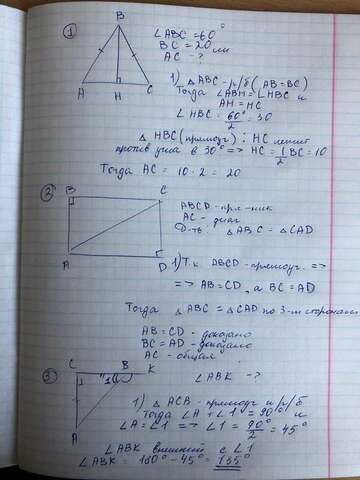 1
B
A
H
C
∠ABC = 60°
BC = 20 см
AC - ?
1) △ABC - р/б (AB = BC)
Тогда ∠ABH = ∠HBC и
AH = HC
∠HBC = 60°/2 = 30
△HBC (прямоуг): HC лежит
против угла в 30° => HC = 1/2 BC = 10
Тогда AC = 10 · 2 = 20
2
B
C
A
D
ABCD - пр-ник
AC - диаг
Д-ть: △ABC = △CAD
1) Т.к. ABCD - прямоуг. =>
=> AB = CD, а BC = AD
Тогда △ABC = △CAD по 3-м сторонам
AB = CD - доказано
BC = AD - доказано
AC - общая
3
C
B
K
1
A
∠ABK - ?
1) △ACB - прямоуг и р/б
Тогда ∠A + ∠1 = 90° и
∠A = ∠1 => ∠1 = 90°/2 = 45°
∠ABK внешний с ∠1
∠ABK = 180° - 45° = 135°